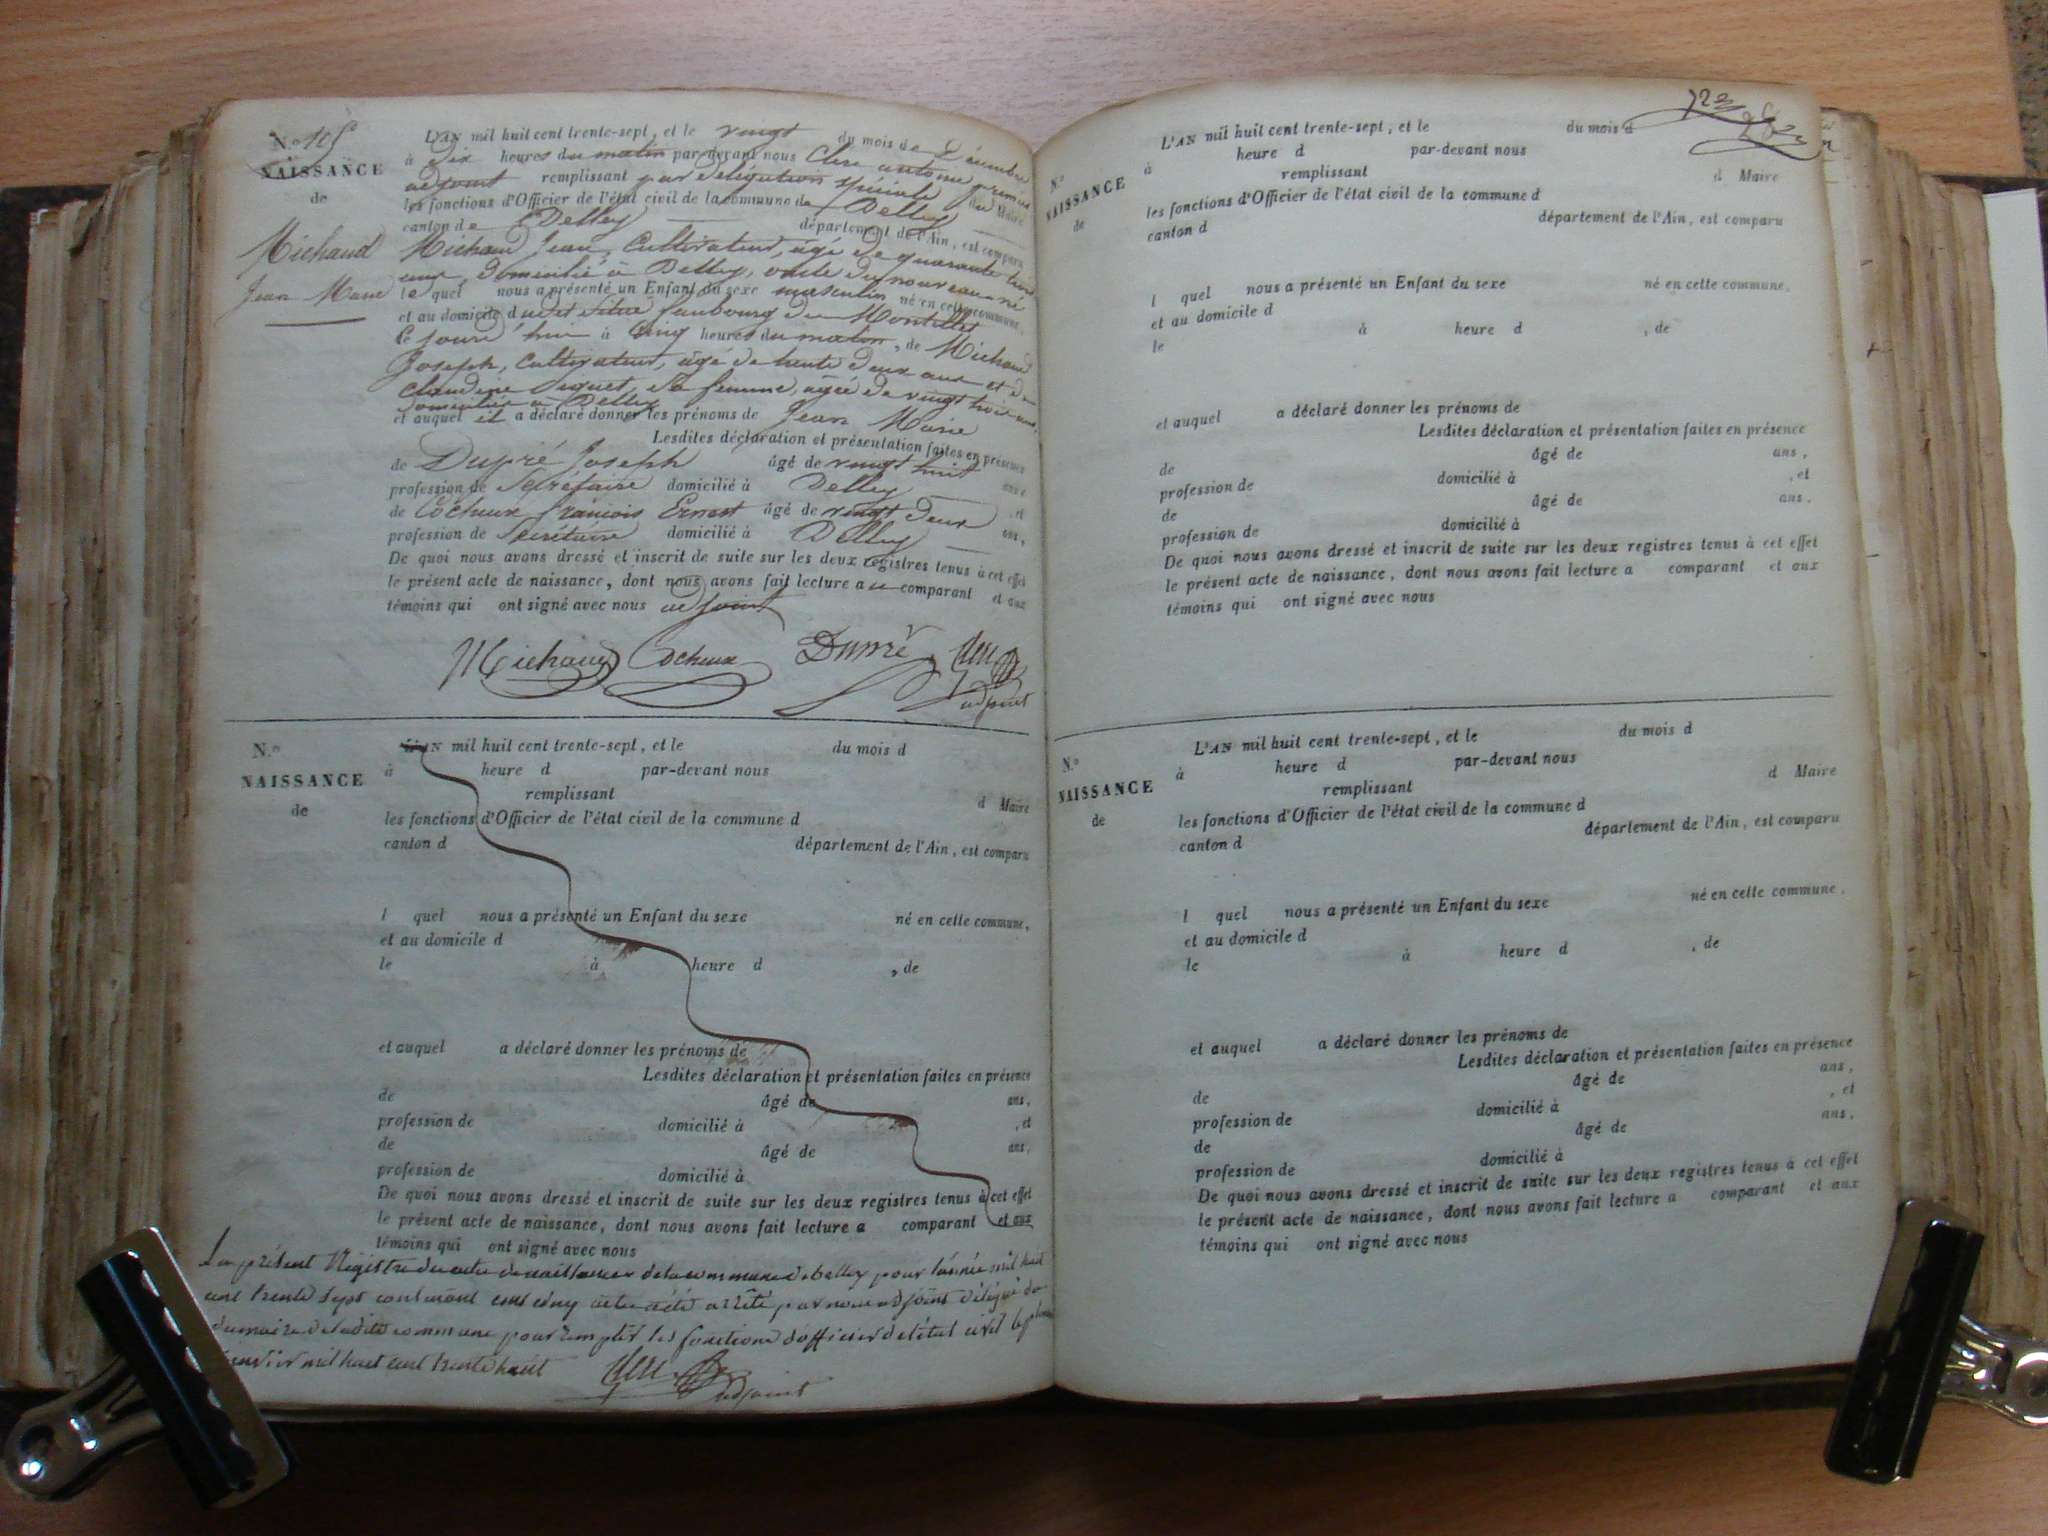 N.o 105
NAISSANCE
de
Michaud
Jean Marie
L'AN mil huit cent trente-sept, et le vingt du mois de Décembre
à dix heures du matin par-devant nous Clerc antoine premier
adjoint remplissant par délégation spéciale du Maire
les fonctions d'Officier de l'état civil de la commune de Belley
canton de Belley département de l'Ain, est comparu
Michaud Jean, Cultivateur, âgé de quarante trois
ans, domicilié à Belley, oncle du nouveau né
lequel nous a présenté un Enfant du sexe masculin né en cette commune,
et au domicile dudit situé faubourg du Montillet
le jourd'hui à Cinq heures du matin, de Michaud
Joseph, Cultivateur, âgé de trente deux ans et de
claudine Seguet, sa femme, âgée de vingt trois ans,
domiciliés à Belley
et auquel il a déclaré donner les prénoms de Jean Marie
Lesdites déclaration et présentation faites en présence
de Dupré Joseph âgé de vingt huit ans,
profession de Secrétaire domicilié à Belley , et
de Cocheux françois Ernest âgé de vingt deux ans,
profession de Secrétaire domicilié à Belley
De quoi nous avons dressé et inscrit de suite sur les deux registres tenus à cet effet
le présent acte de naissance, dont nous avons fait lecture au comparant et aux
témoins qui ont signé avec nous adjoint
Michaud Cocheux Dupré Clerc
adjoint
N.o
NAISSANCE
de
L'AN mil huit cent trente-sept, et le du mois d
à heure d par-devant nous
remplissant d Maire
les fonctions d'Officier de l'état civil de la commune d
canton d département de l'Ain, est comparu
l quel nous a présenté un Enfant du sexe né en cette commune,
et au domicile d
le à heure d , de
et auquel a déclaré donner les prénoms de
Lesdites déclaration et présentation faites en présence
de âgé de ans,
profession de domicilié à , et
de âgé de ans,
profession de domicilié à
De quoi nous avons dressé et inscrit de suite sur les deux registres tenus à cet effet
le présent acte de naissance, dont nous avons fait lecture a comparant et aux
témoins qui ont signé avec nous
Le présent Régistre des actes de naissances de la commune de belley pour l'année mil huit
cent trente sept contenant cent cinq actes a été arrêté par nous adjoint délégué
du maire de ladite commune pour remplir les fonctions d'officier de l'état civil le
janvier mil huit cent trente huit Clerc
adjoint
N.o
NAISSANCE
de
L'AN mil huit cent trente-sept, et le du mois d
à heure d par-devant nous
remplissant d Maire
les fonctions d'Officier de l'état civil de la commune d
canton d département de l'Ain, est comparu
l quel nous a présenté un Enfant du sexe né en cette commune,
et au domicile d
le à heure d , de
et auquel a déclaré donner les prénoms de
Lesdites déclaration et présentation faites en présence
de âgé de ans,
profession de domicilié à , et
de âgé de ans,
profession de domicilié à
De quoi nous avons dressé et inscrit de suite sur les deux registres tenus à cet effet
le présent acte de naissance, dont nous avons fait lecture a comparant et aux
témoins qui ont signé avec nous
N.o
NAISSANCE
de
L'AN mil huit cent trente-sept, et le du mois d
à heure d par-devant nous
remplissant d Maire
les fonctions d'Officier de l'état civil de la commune d
canton d département de l'Ain, est comparu
l quel nous a présenté un Enfant du sexe né en cette commune,
et au domicile d
le à heure d , de
et auquel a déclaré donner les prénoms de
Lesdites déclaration et présentation faites en présence
de âgé de ans,
profession de domicilié à , et
de âgé de ans,
profession de domicilié à
De quoi nous avons dressé et inscrit de suite sur les deux registres tenus à cet effet
le présent acte de naissance, dont nous avons fait lecture a comparant et aux
témoins qui ont signé avec nous